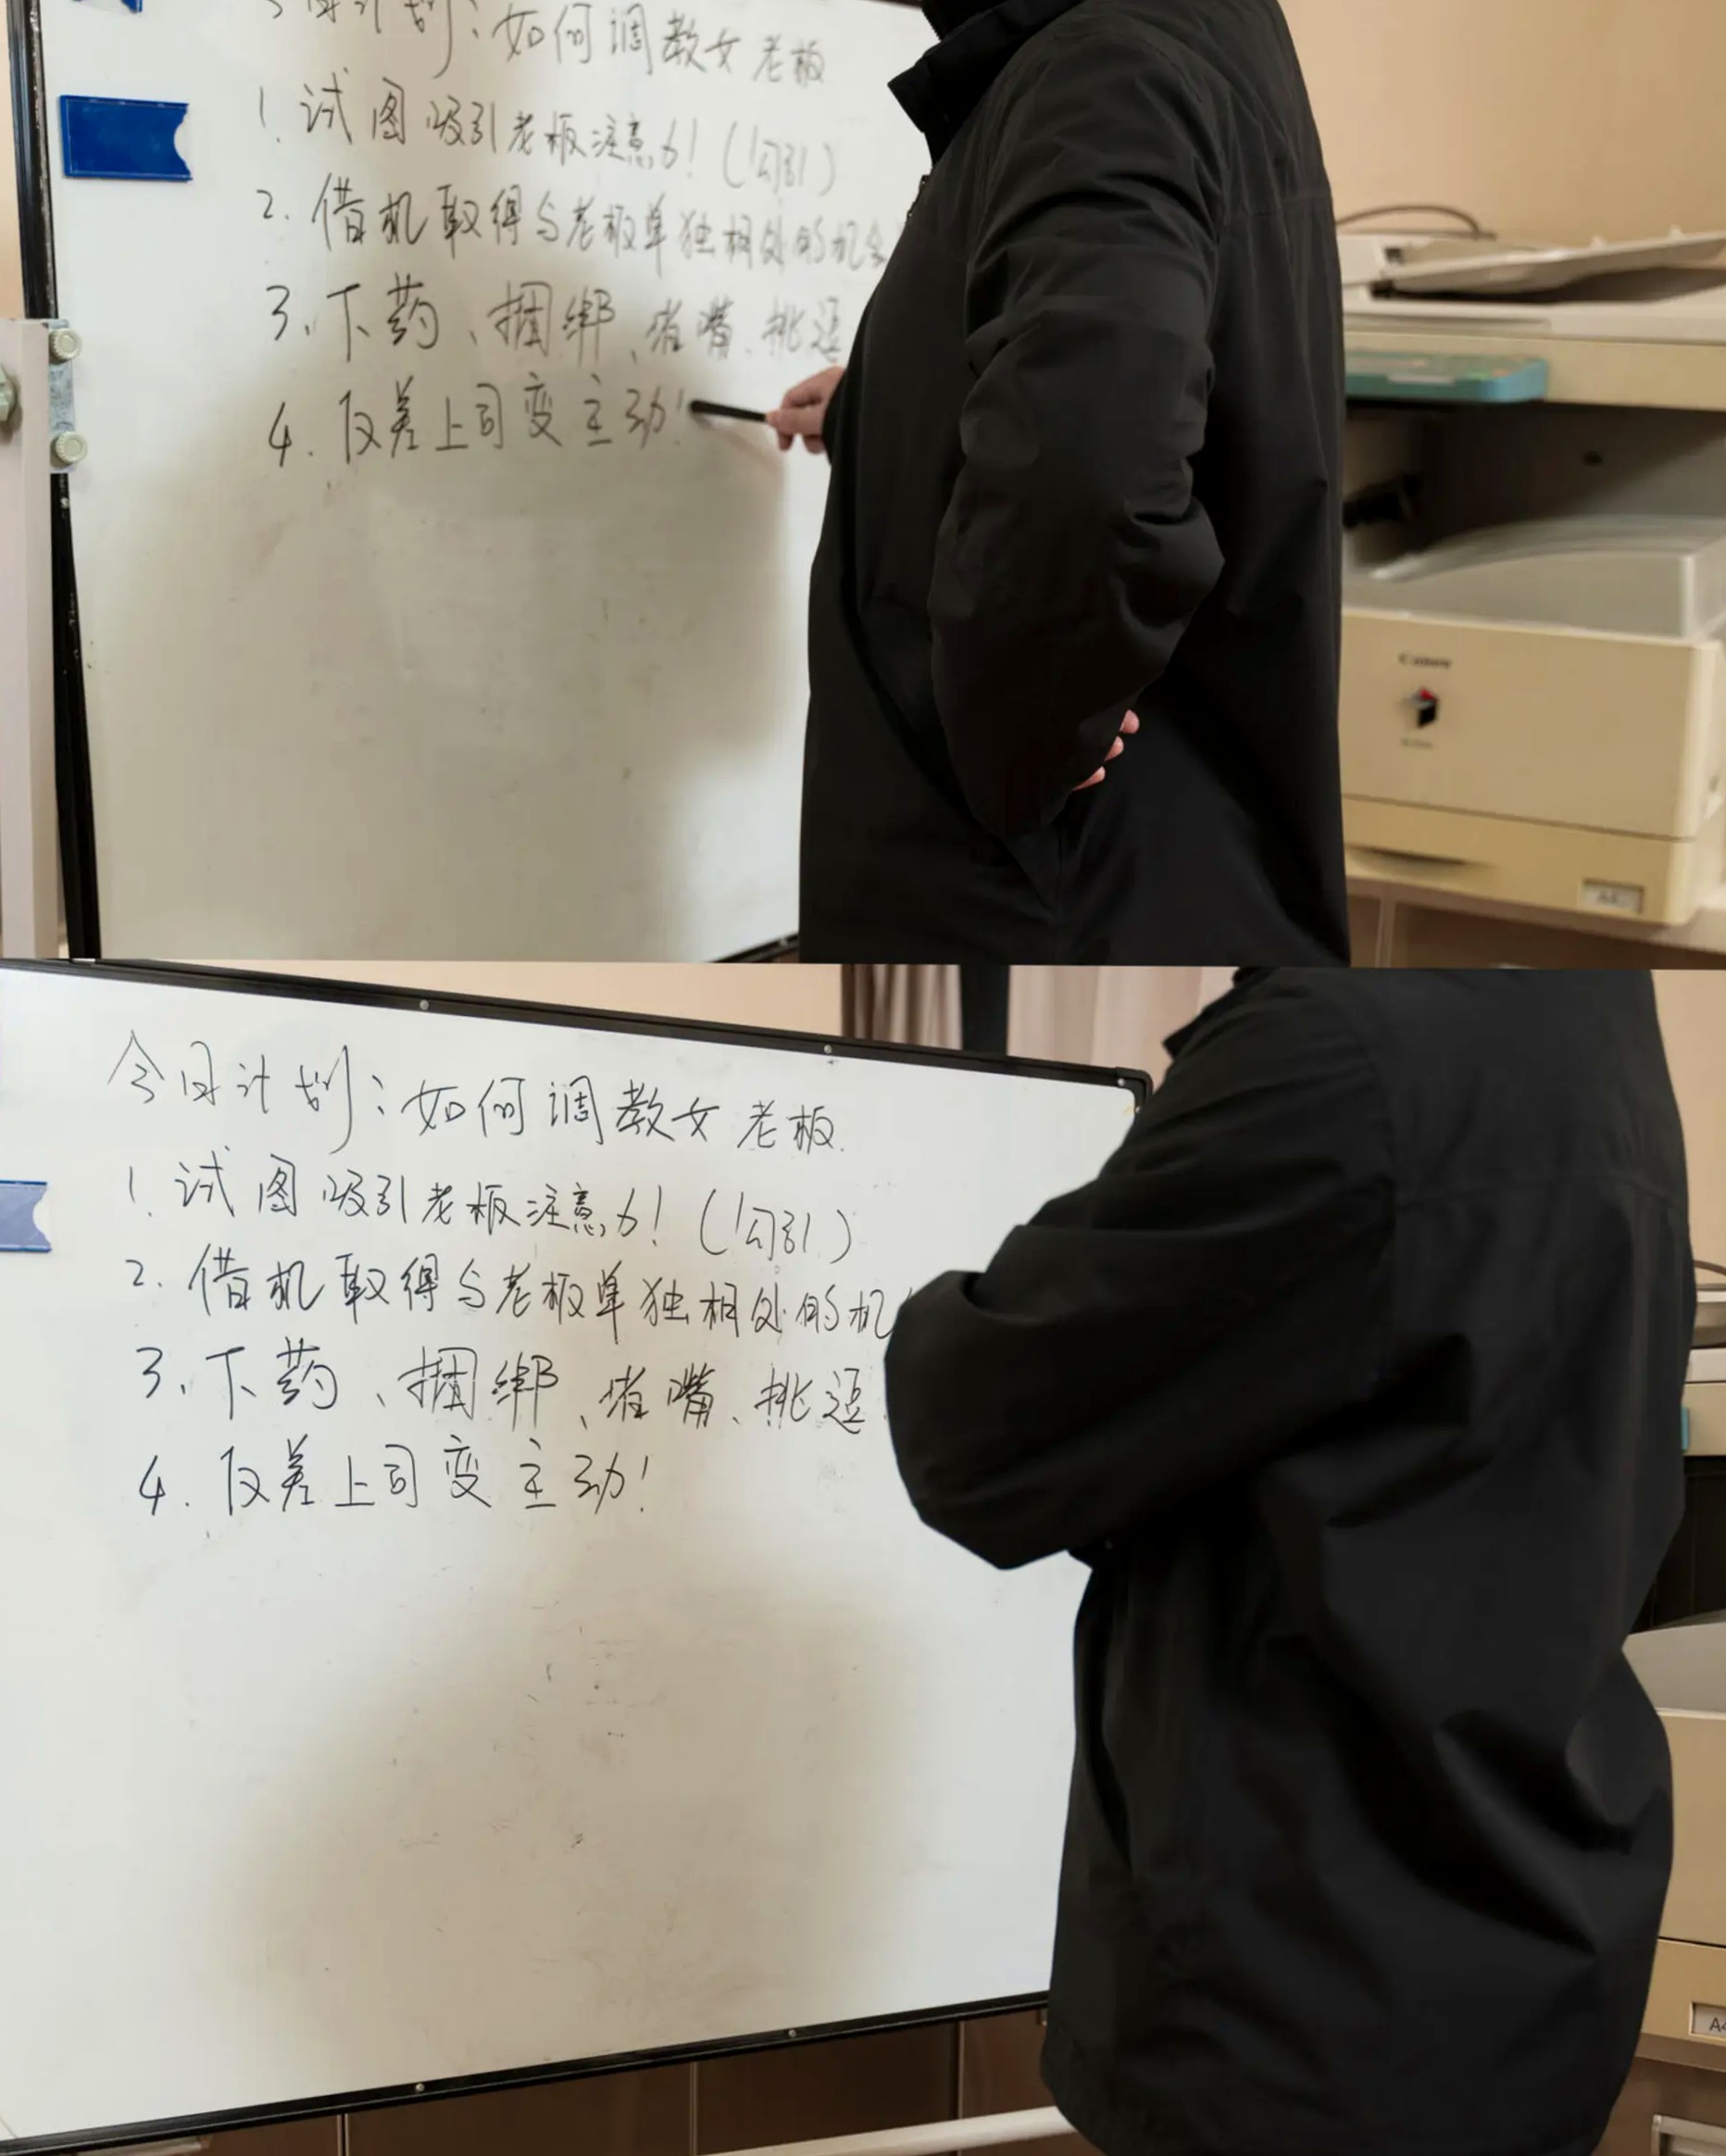 今日计划：如何调教女老板
1. 试图吸引老板注意力！（勾引）
2. 借机取得与老板单独相处的机会
3、下药、捆绑、堵嘴、挑逗
4. 反差上司变主动！
Canon
今日计划：如何调教女老板
1. 试图吸引老板注意力！（勾引）
2. 借机取得与老板单独相处的机
3、下药、捆绑、堵嘴、挑逗
4. 反差上司变主动！
A4